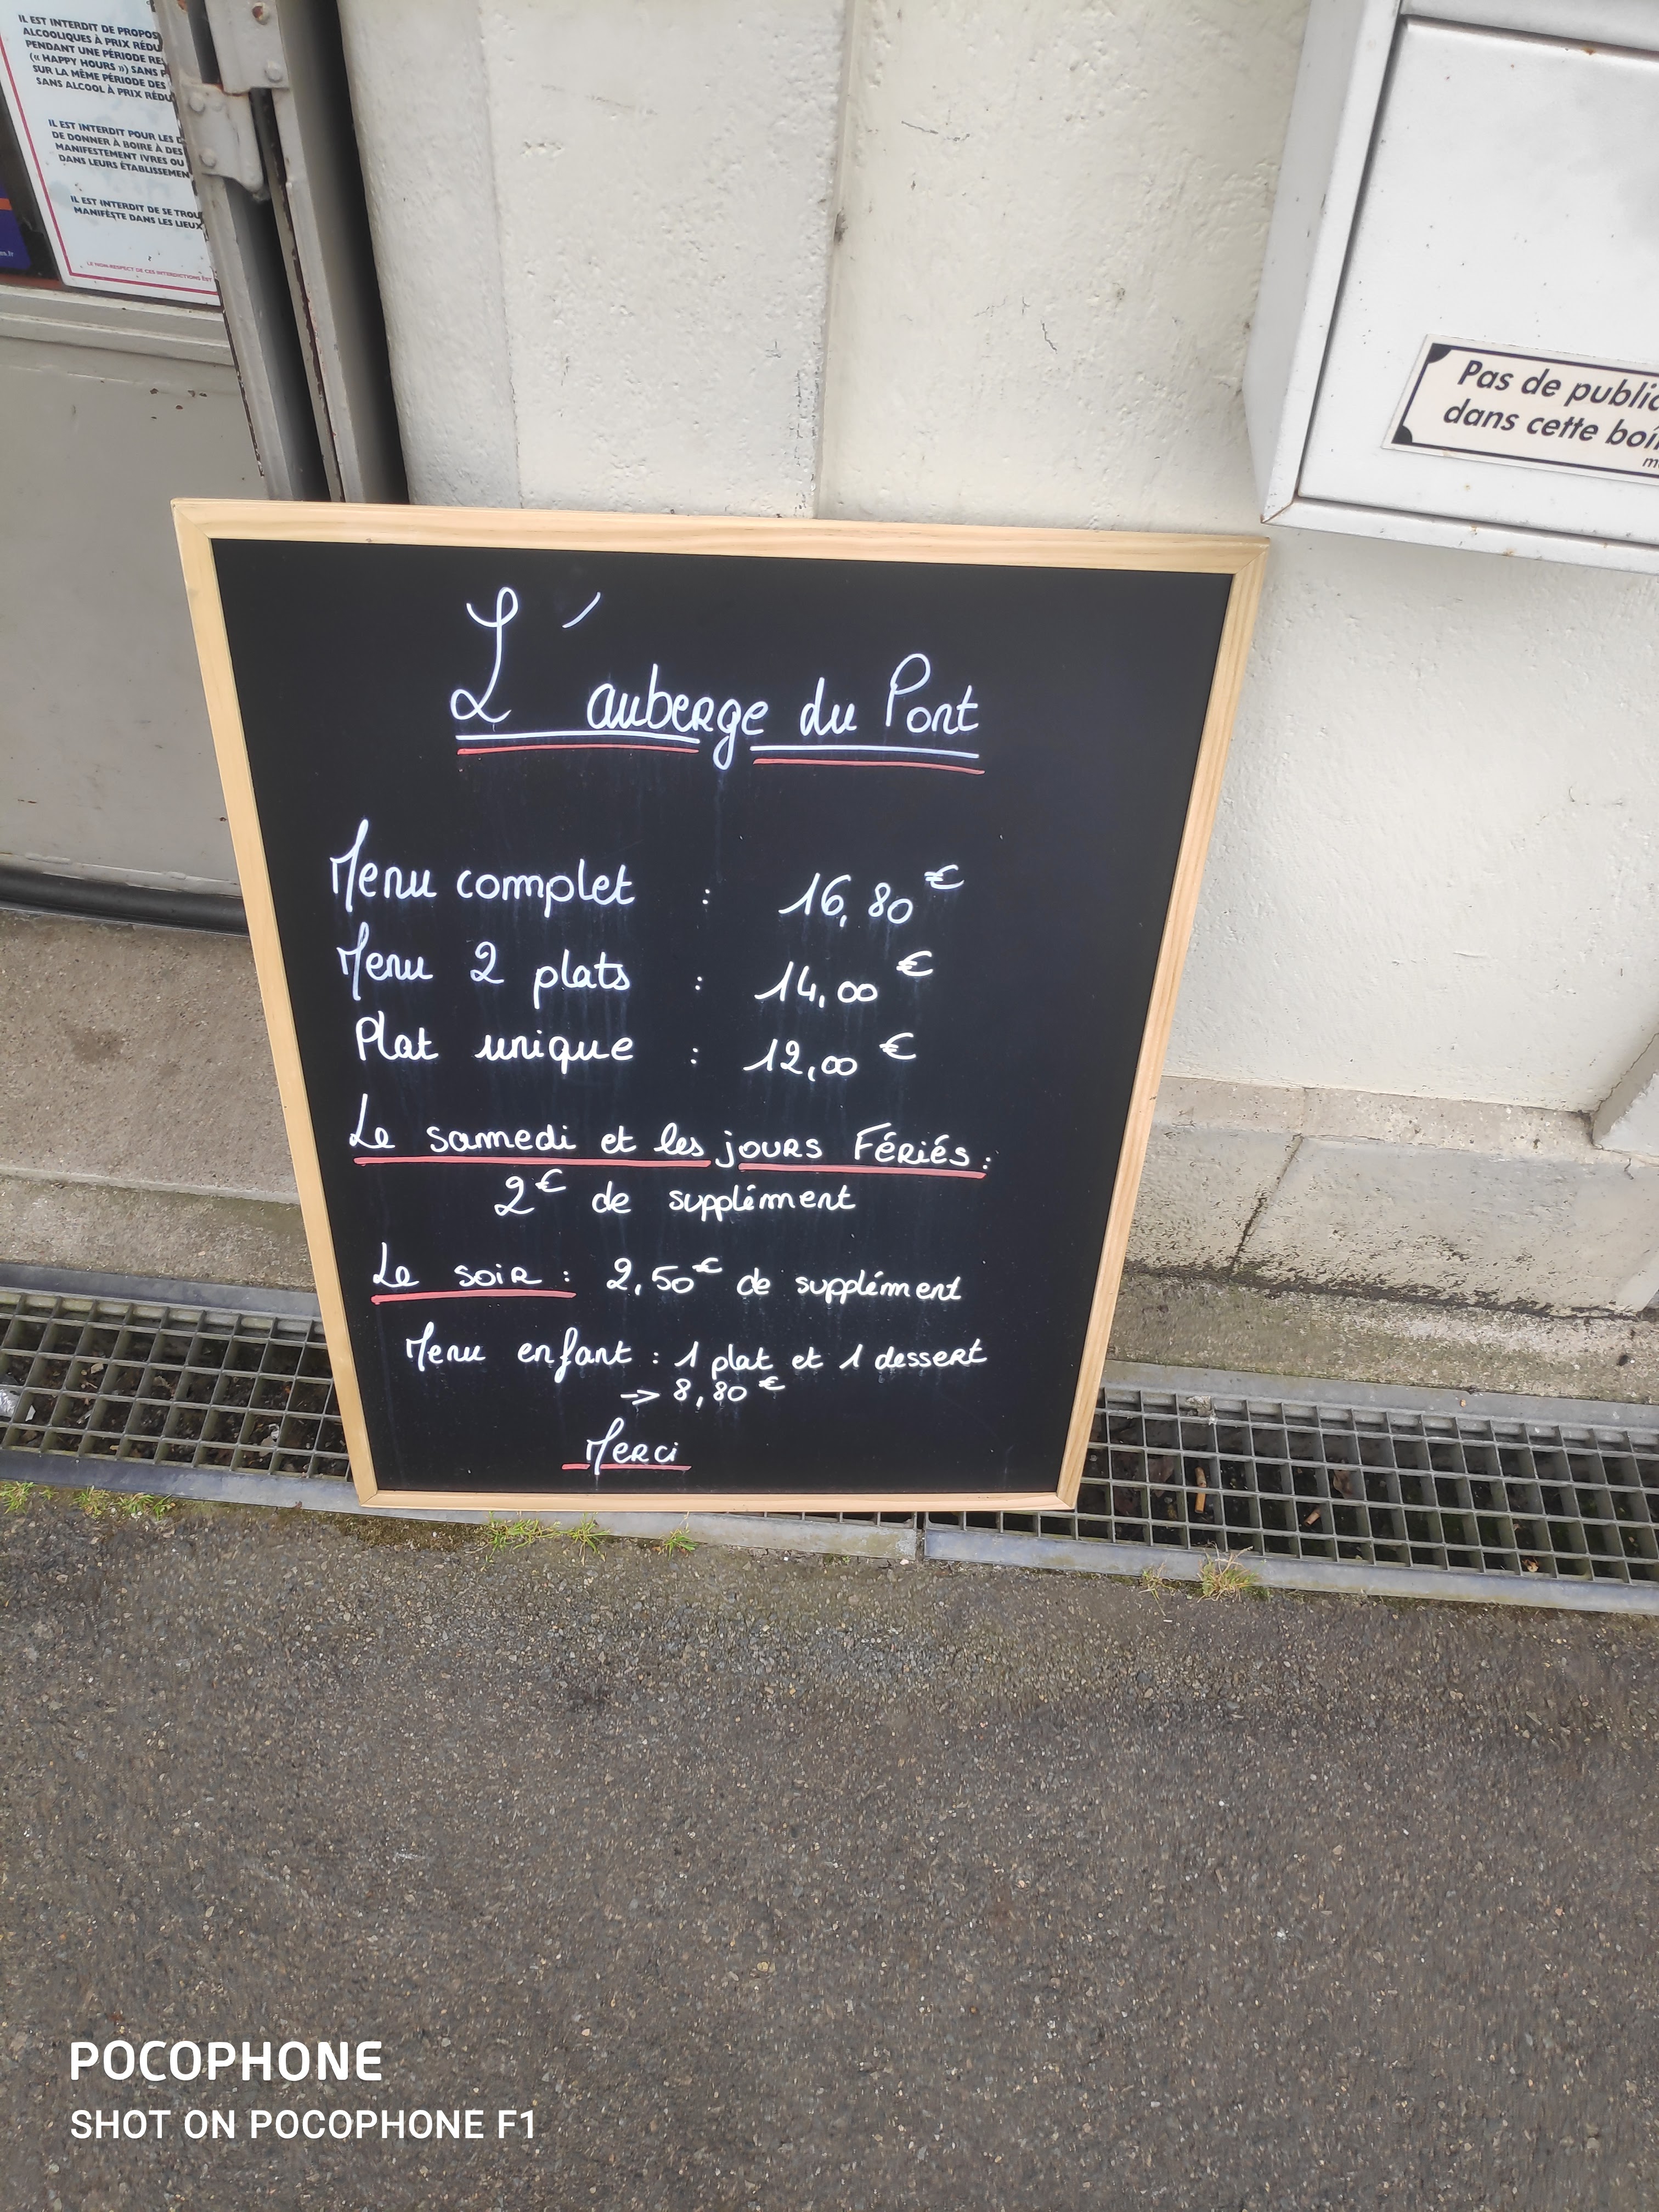 IL EST INTERDIT DE PROPOS
ALCOOLIQUES À PRIX RÉDU
PENDANT UNE PÉRIODE RE
(« HAPPY HOURS ») SANS P
SUR LA MÊME PÉRIODE DES
SANS ALCOOL À PRIX RÉDU
IL EST INTERDIT POUR LES D
DE DONNER À BOIRE À DES
MANIFESTEMENT IVRES OU
DANS LEURS ÉTABLISSEMEN
IL EST INTERDIT DE SE TROU
MANIFESTE DANS LES LIEUX
LE NON-RESPECT DE CES INTERDICTIONS EST
Pas de public
dans cette boî
L'auberge du Pont
Menu complet : 16,80€
Menu 2 plats : 14,00€
Plat unique : 12,00€
Le samedi et les jours Fériés :
2€ de supplément
Le soir : 2,50€ de supplément
Menu enfant : 1 plat et 1 dessert
-> 8,80€
Merci
POCOPHONE
SHOT ON POCOPHONE F1